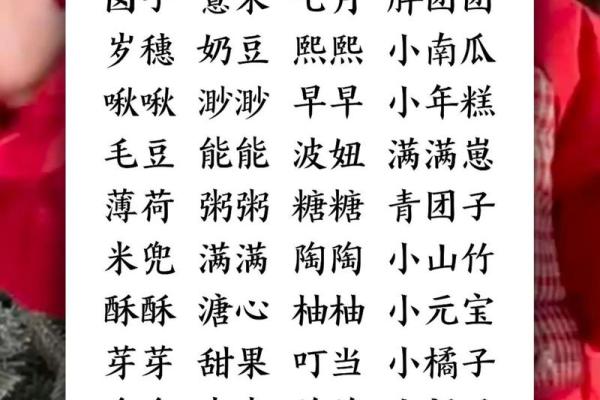 囡子 薏米 七月 胖团团
岁穗 奶豆 熙熙 小南瓜
啾啾 渺渺 早早 小年糕
毛豆 能能 波妞 满满崽
薄荷 粥粥 糖糖 青团子
米兜 满满 陶陶 小山竹
酥酥 溏心 柚柚 小元宝
芽芽 甜果 叮当 小橘子